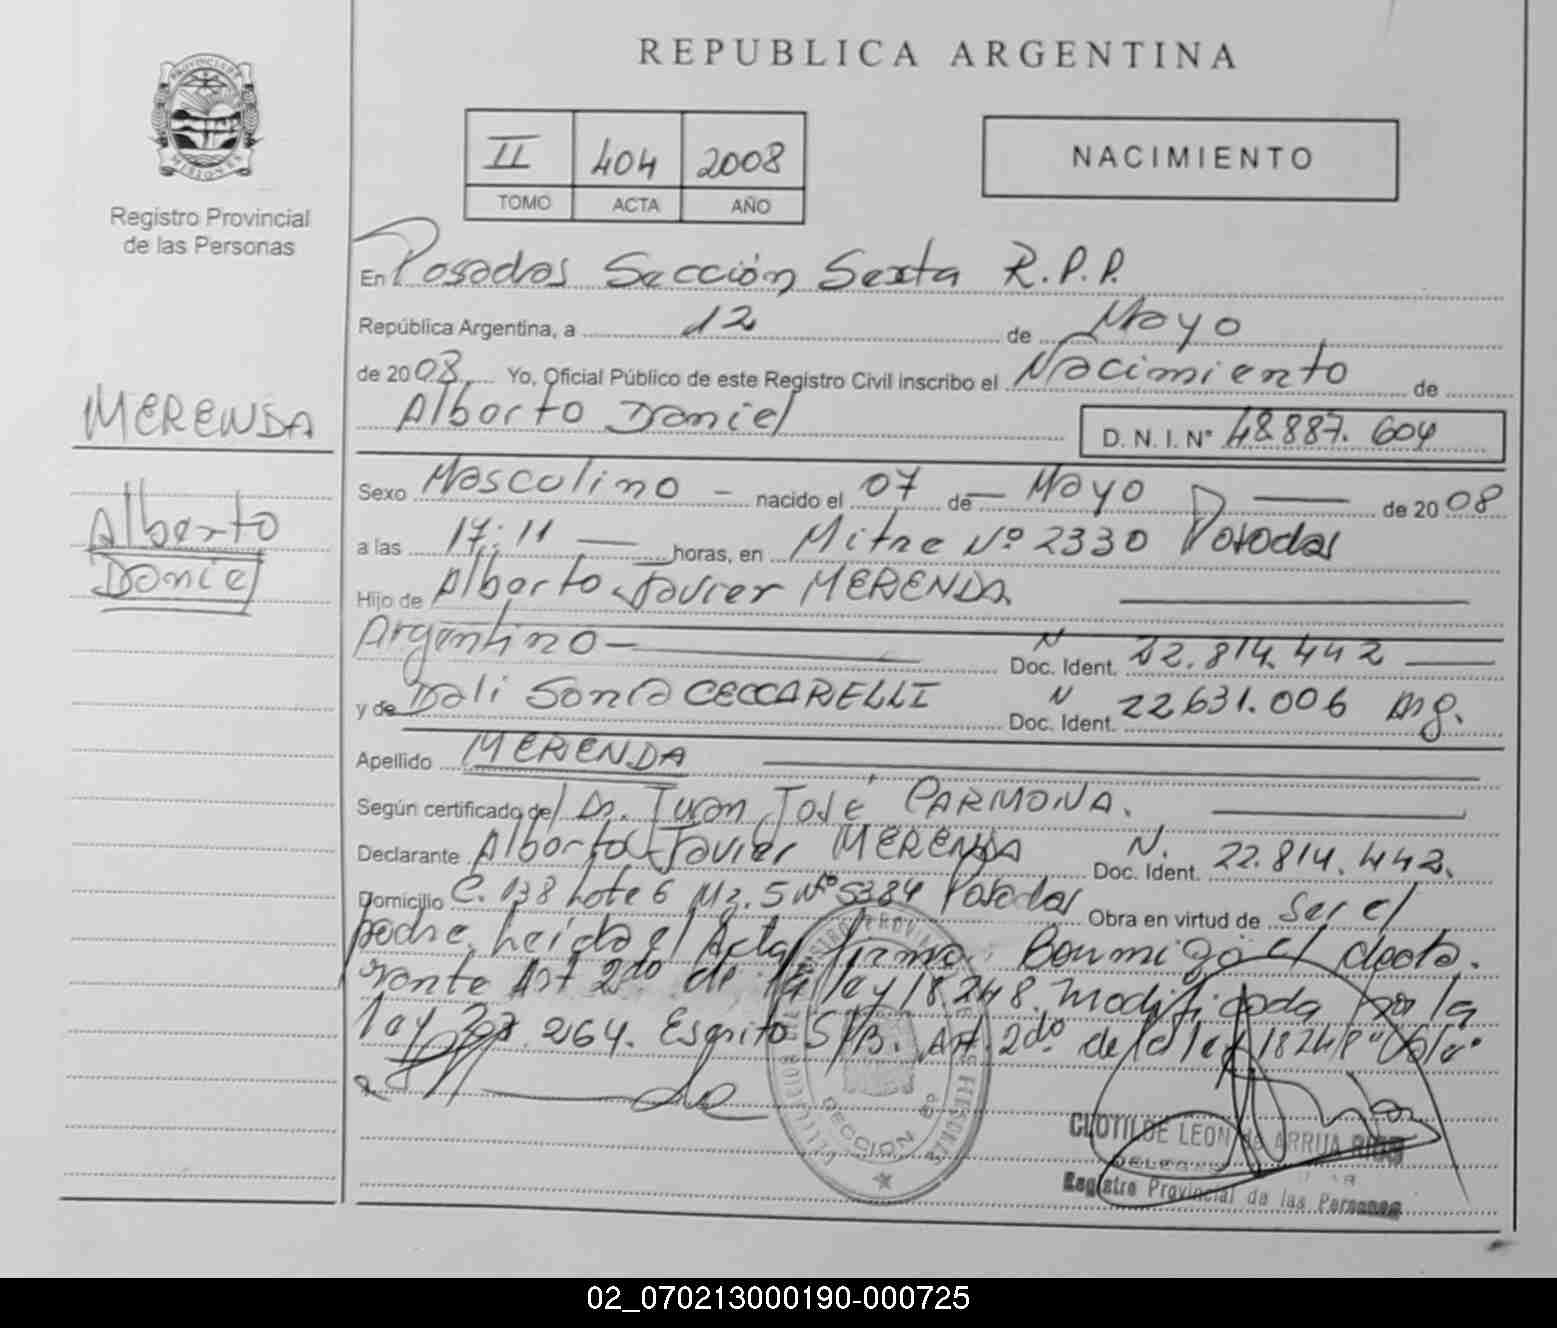 PROVINCIA DE
MISIONES
Registro Provincial
de las Personas
MERENDA
Alberto
Daniel
REPUBLICA ARGENTINA
II 404 2008
TOMO ACTA AÑO
NACIMIENTO
En Posadas Sección Sexta R.P.P.
República Argentina, a 12 de Mayo
de 2008, Yo, Oficial Público de este Registro Civil inscribo el Nacimiento de
Alberto Daniel D. N. I. N° 48.887.604
Sexo Masculino - nacido el 07 de - Mayo de 2008
a las 17:11 horas, en Mitre Nº 2330 Posadas
Hijo de Alberto Javier MERENDA
Argentino - N Doc. Ident. 22.814.442
y de Dali Sonia CECCARELLI N Doc. Ident. 22631.006 Arg.
Apellido MERENDA
Según certificado del Dr. Juan José CARMONA.
Declarante Alberto Javier MERENDA N. Doc. Ident. 22.814.442.
Domicilio C. 138 Lote 6 Mz. 5 Nº 5384 Posadas Obra en virtud de Ser el
padre. Leída el Acta, firma Conmigo el decla-
rante Art 2do de la ley 18.248. modificada por la
ley 264. Escrito S/B. Art. 2do de la ley 18248 "Vale"
SECCION 6ª
CLOTILDE LEON de ARRUA
Registro Provincial de las Personas
02_070213000190-000725